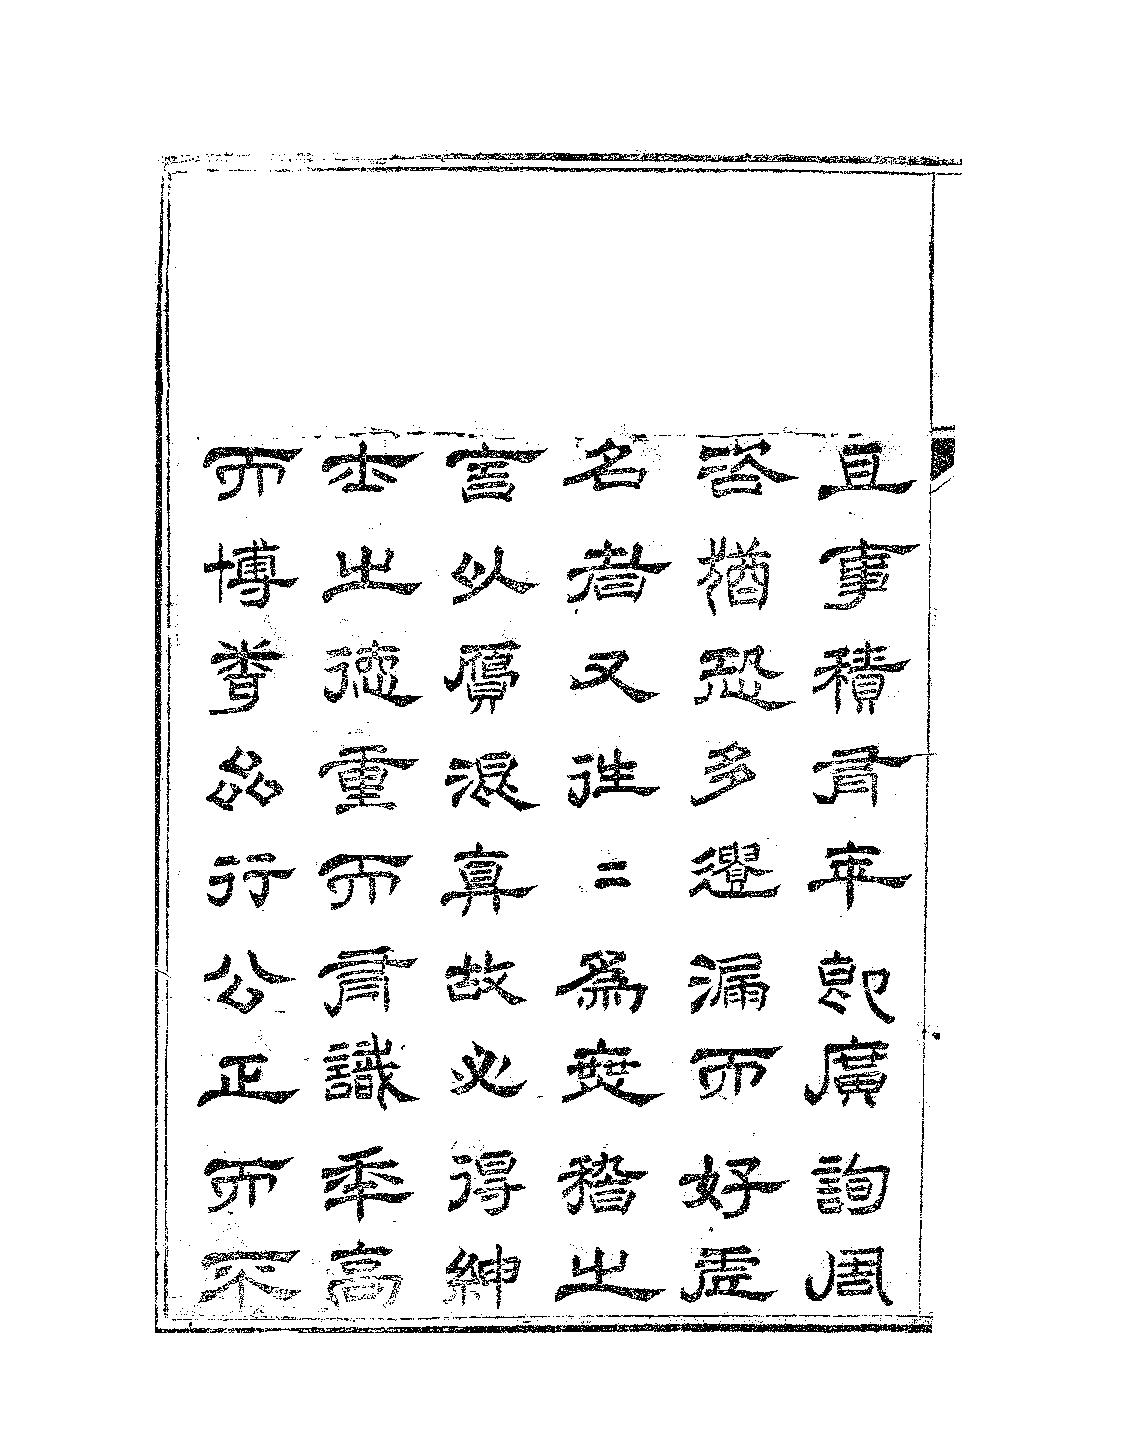 且事積有年即廣詢周
咨猶恐多遺漏而好虛
名者又往二為無稽之
言以贗混真故必得紳
士之德重而有識年高
而博品行公正而不